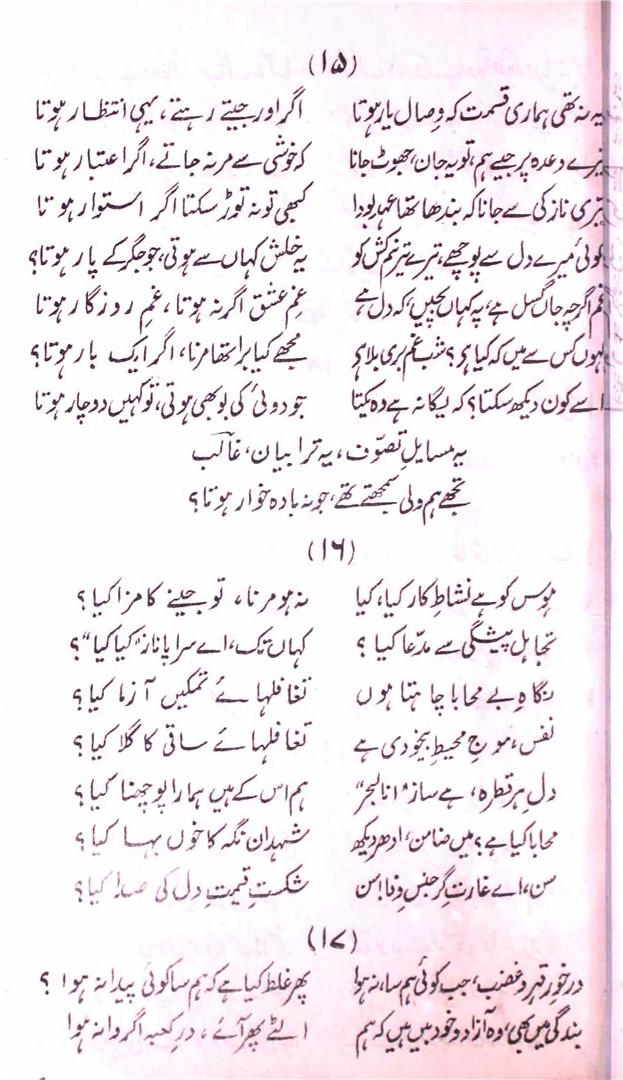 (۱۵)
یہ نہ تھی ہماری قسمت کہ وصالِ یار ہوتا اگر اور جیتے رہتے، یہی انتظار ہوتا
تیرے وعدہ پر جیے ہم، تو یہ جان، جھوٹ جانا کہ خوشی سے مر نہ جاتے، اگر اعتبار ہوتا
تیری نازکی سے جانا کہ بندھا تھا عہد بودا کبھی تو نہ توڑ سکتا اگر استوار ہوتا
کوئی میرے دل سے پوچھے، تیرے تیرِ نیم کش کو یہ خلش کہاں سے ہوتی، جو جگر کے پار ہوتا؟
غم اگرچہ جاں گسل ہے، پہ کہاں بچیں، کہ دل ہے غمِ عشق اگر نہ ہوتا، غمِ روزگار ہوتا
کہوں کس سے میں کہ کیا ہی؟ شبِ غم بری بلا ہی مجھے کیا برا تھا مرنا، اگر ایک بار ہوتا؟
اسے کون دیکھ سکتا؟ کہ یگانہ ہے وہ یکتا جو دوئی کی بو بھی ہوتی، تو کہیں دو چار ہوتا
یہ مسایلِ تصوّف، یہ ترا بیان، غالب
تجھے ہم ولی سمجھتے تھے، جو نہ بادہ خوار ہوتا؟
(۱۶)
ہوس کو ہے نشاطِ کار کیا، کیا نہ ہو مرنا، تو جینے کا مزا کیا؟
تجاہل پیشگی سے مدّعا کیا؟ کہاں تک، اے سراپا ناز "کیا کیا"؟
نگاہِ بے محابا چاہتا ہوں تغافلہائے تمکیں آزما کیا؟
نفس، موجِ محیطِ بیخودی ہے تغافلہائے ساقی کا گلا کیا؟
دلِ ہر قطرہ، ہے سازِ "انا البحر" ہم اس کے ہیں ہمارا پوچھنا کیا؟
محابا کیا ہے؟ میں ضامن، ادھر دیکھ شہدانِ نگہ کا خوں بہا کیا؟
سن، اے غارت گرِ جنسِ وفا! سن شکستِ قیمتِ دل کی صدا کیا؟
(۱۷)
درخورِ قہر و غضب، جب کوئی ہم سا، نہ ہوا پھر غلط کیا ہے کہ ہم سا کوئی پیدا نہ ہوا؟
بندگی میں بھی، وہ آزاد و خود بیں ہیں کہ ہم الٹے پھر آئے، درِ کعبہ اگر وا نہ ہوا